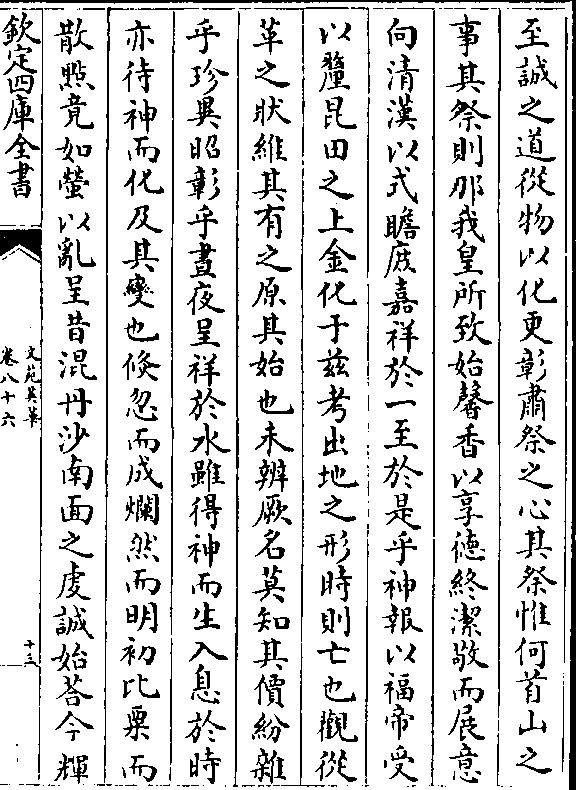 至誠之道從物以化更彰肅祭之心其祭惟何首山之
事其祭則那我皇所致始馨香以享德終潔敬而展意
向清漢以式瞻庶嘉祥於一至於是乎神報以福帝受
以釐昆田之上金化于茲考出地之形時則亡也觀從
革之狀維其有之原其始也未辨厥名莫知其價紛雜
乎珍異昭彰乎晝夜呈祥於水雖得神而生入息於時
亦待神而化及其變也倏忽而成爛然而明初比栗而
散㸃竟如螢以亂呈昔混丹沙南面之虔誠始荅今輝
欽定四庫全書
文苑英華
卷八十六
十三